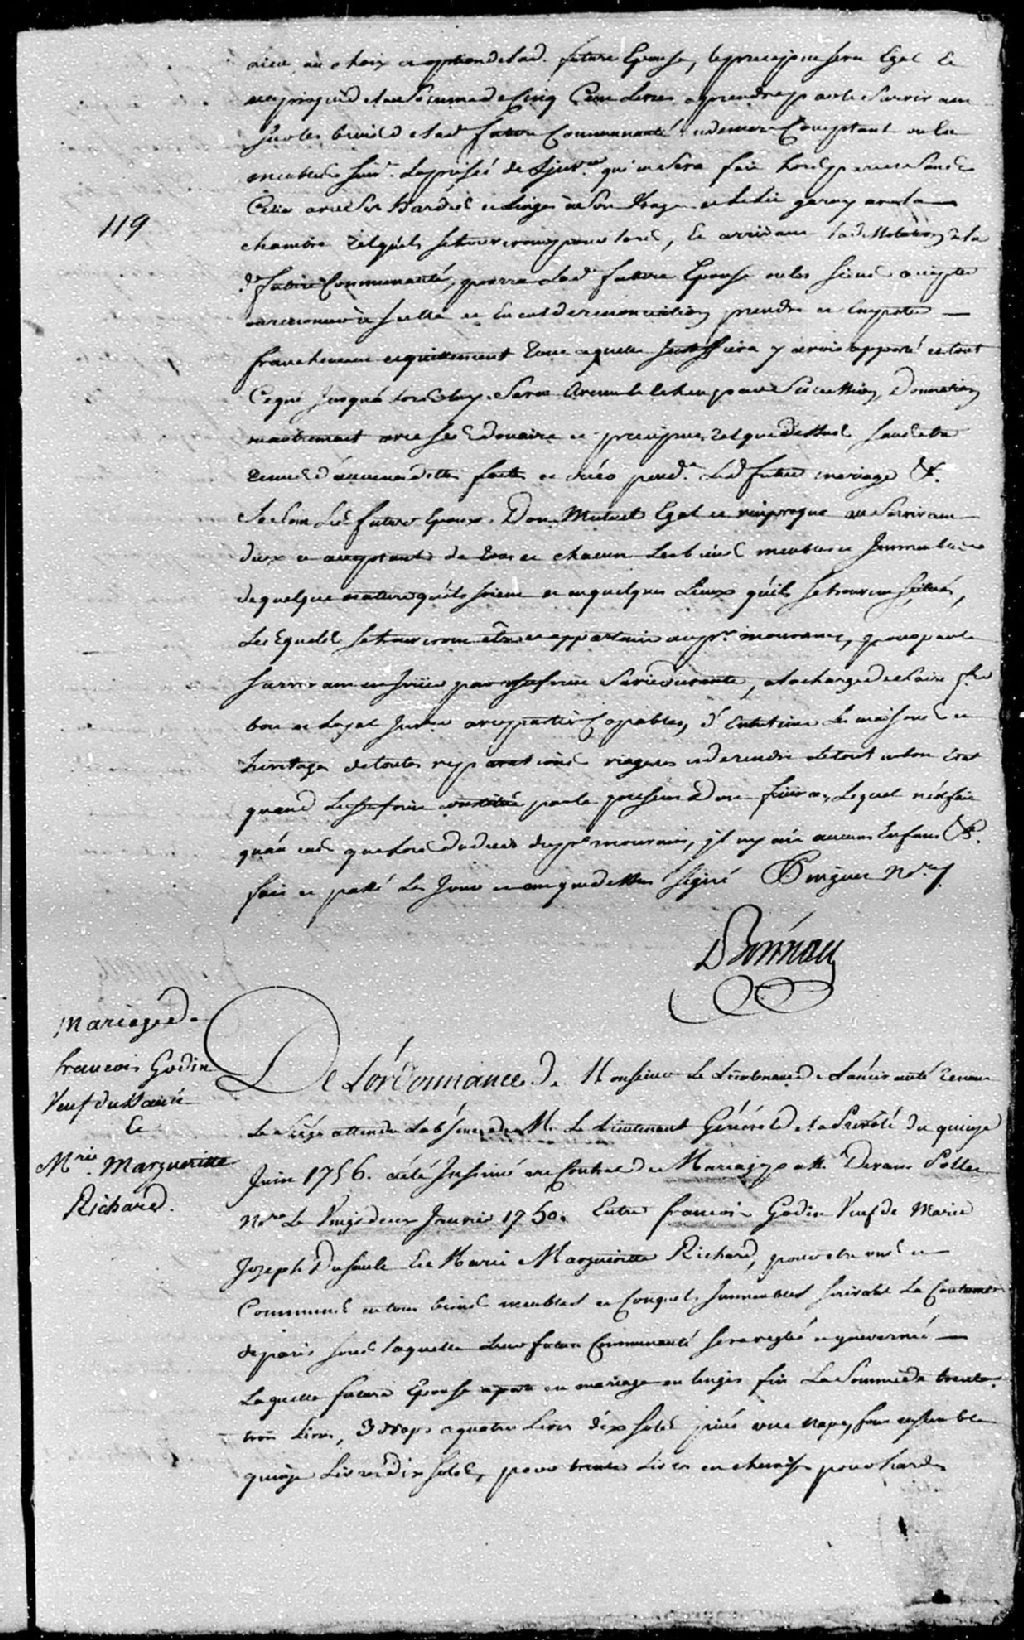 aice au choix et option de lad. future Epouse, le preciput sera Egal et
reciproque de la somme de Cinq Cens Livres a prendre par le survivant
sur les biens de lad. future Communauté en deniers Comptant ou En
meubles suiv. la prisée de l'inv.re qui en sera fait hors part et sans
Crüe avec ses hardes et linges à son usage et le lit garny de la
119
chambre tels qu'ils se trouveront pour lors, Et arrivant la dissolution de la
d. future Communauté, pourra lad. future Epouse ou les siens accepter
ou renoncer à icelle et En cas de renonciation, prendre et emporter
franchement et quittement tout ce qu'elle justiffiera y avoir apporté et tout
Ce qui jusqu'à lors luy sera avenu et Echeu par Succession, Donnation
ou autrement avec ses doüaire et preciput tel que dessus, sans etre
tenus d'aucunes dettes faites et créés pend. led. futur mariage &.
Se sont Les futurs Epoux Don Mutuel Egal et reciproque au survivant
d'eux ce acceptants de tous et chacun les biens meubles et Immeubles
de quelque nature qu'ils soient et en quelques Lieux qu'ils se trouvent scitués,
Lesquels se trouveront être et appartenir au pr. mourant, pour par le
survivant en jouir par usufruit sa vie durante, à la charge de faire f.re
bon et Loyal Inv.re avec parties Capables, d'Entretenir les maisons et
heritages de toutes reparations viageres et de rendre le tout en bon Etat
quand Led. usufruit constitué par le present Don finira, Lequel n'est fait
qu'au cas que lors du deces du pr. mourant, il n'y ait aucuns Enfans &.
fait et passé Les Jour et an que dessus signé Pinguet N.re
DBonneau
Mariage de
francois Godin
Veuf du Marié
Et
M.rie Margueritte
Richard.
De L'ordonnance de Monsieur Le Lieutenant
Le siege attendu L'absence de M. Le Lieutenant Général de la Prévôté du quinze
Juin 1756. a été Insinué un Contrat de Mariage passé Devant
N.re Le Vingt deux Janvier 1750. Entre francois Godin Veuf de Marie
Joseph Dusault Et Marie Margueritte Richard, pour etre uns et
Communs en tous biens meubles et Conquets Immeubles suivant La Coutume
de paris sous laquelle Leur future Communauté sera reglée et gouvernée
Laquelle future Epouse aporte en mariage en linges fin La Somme de trente
trois Livres, 3 draps a quatre Livres dix sols piece une nape, font ensemble
quinze Livres dix sols, pour trente Livres en chemises pour hardes